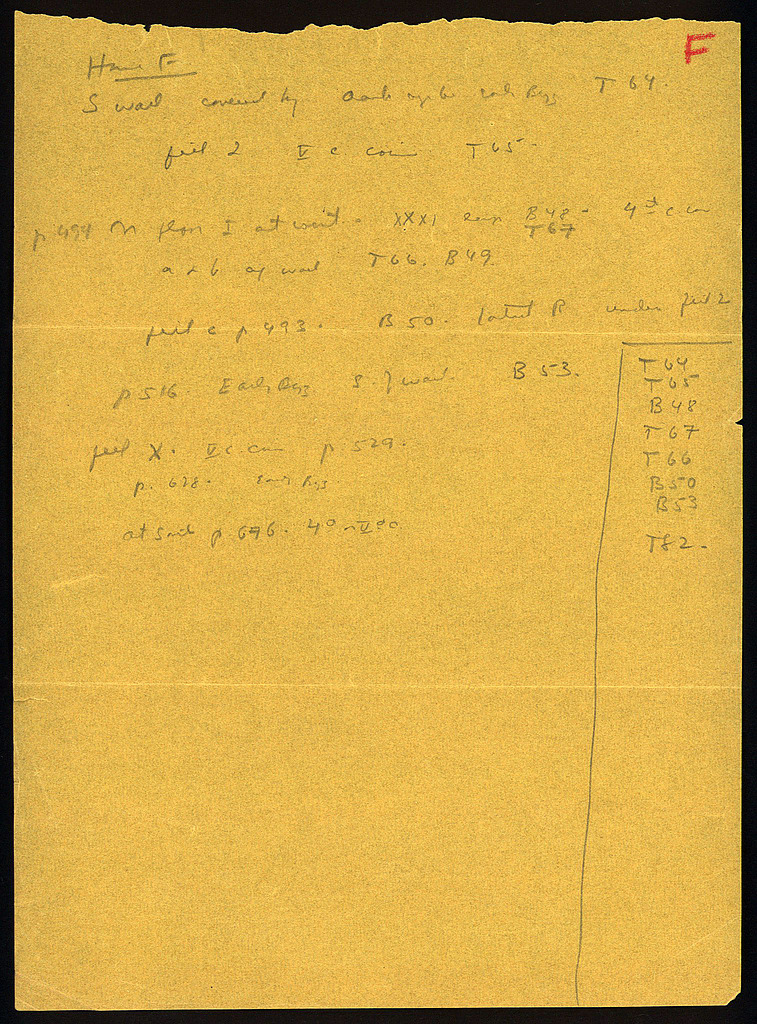 F
House F
S wall covered by T 64.
fill 2 V c coin T 65.
p 494 On floor I at west XXXI B 48 - 4th c coin
T 67
a & b of wall T 66. B 49.
fill c p 493. B 50. latest R under fill 2
p 516. Early Byz S. of wall. B 53.
fill X. V c. coin p. 529.
p. 628. Early Byz.
at South p 676. 4o - V o c
T 64
T 65
B 48
T 67
T 66
B 50
B 53
T 82.